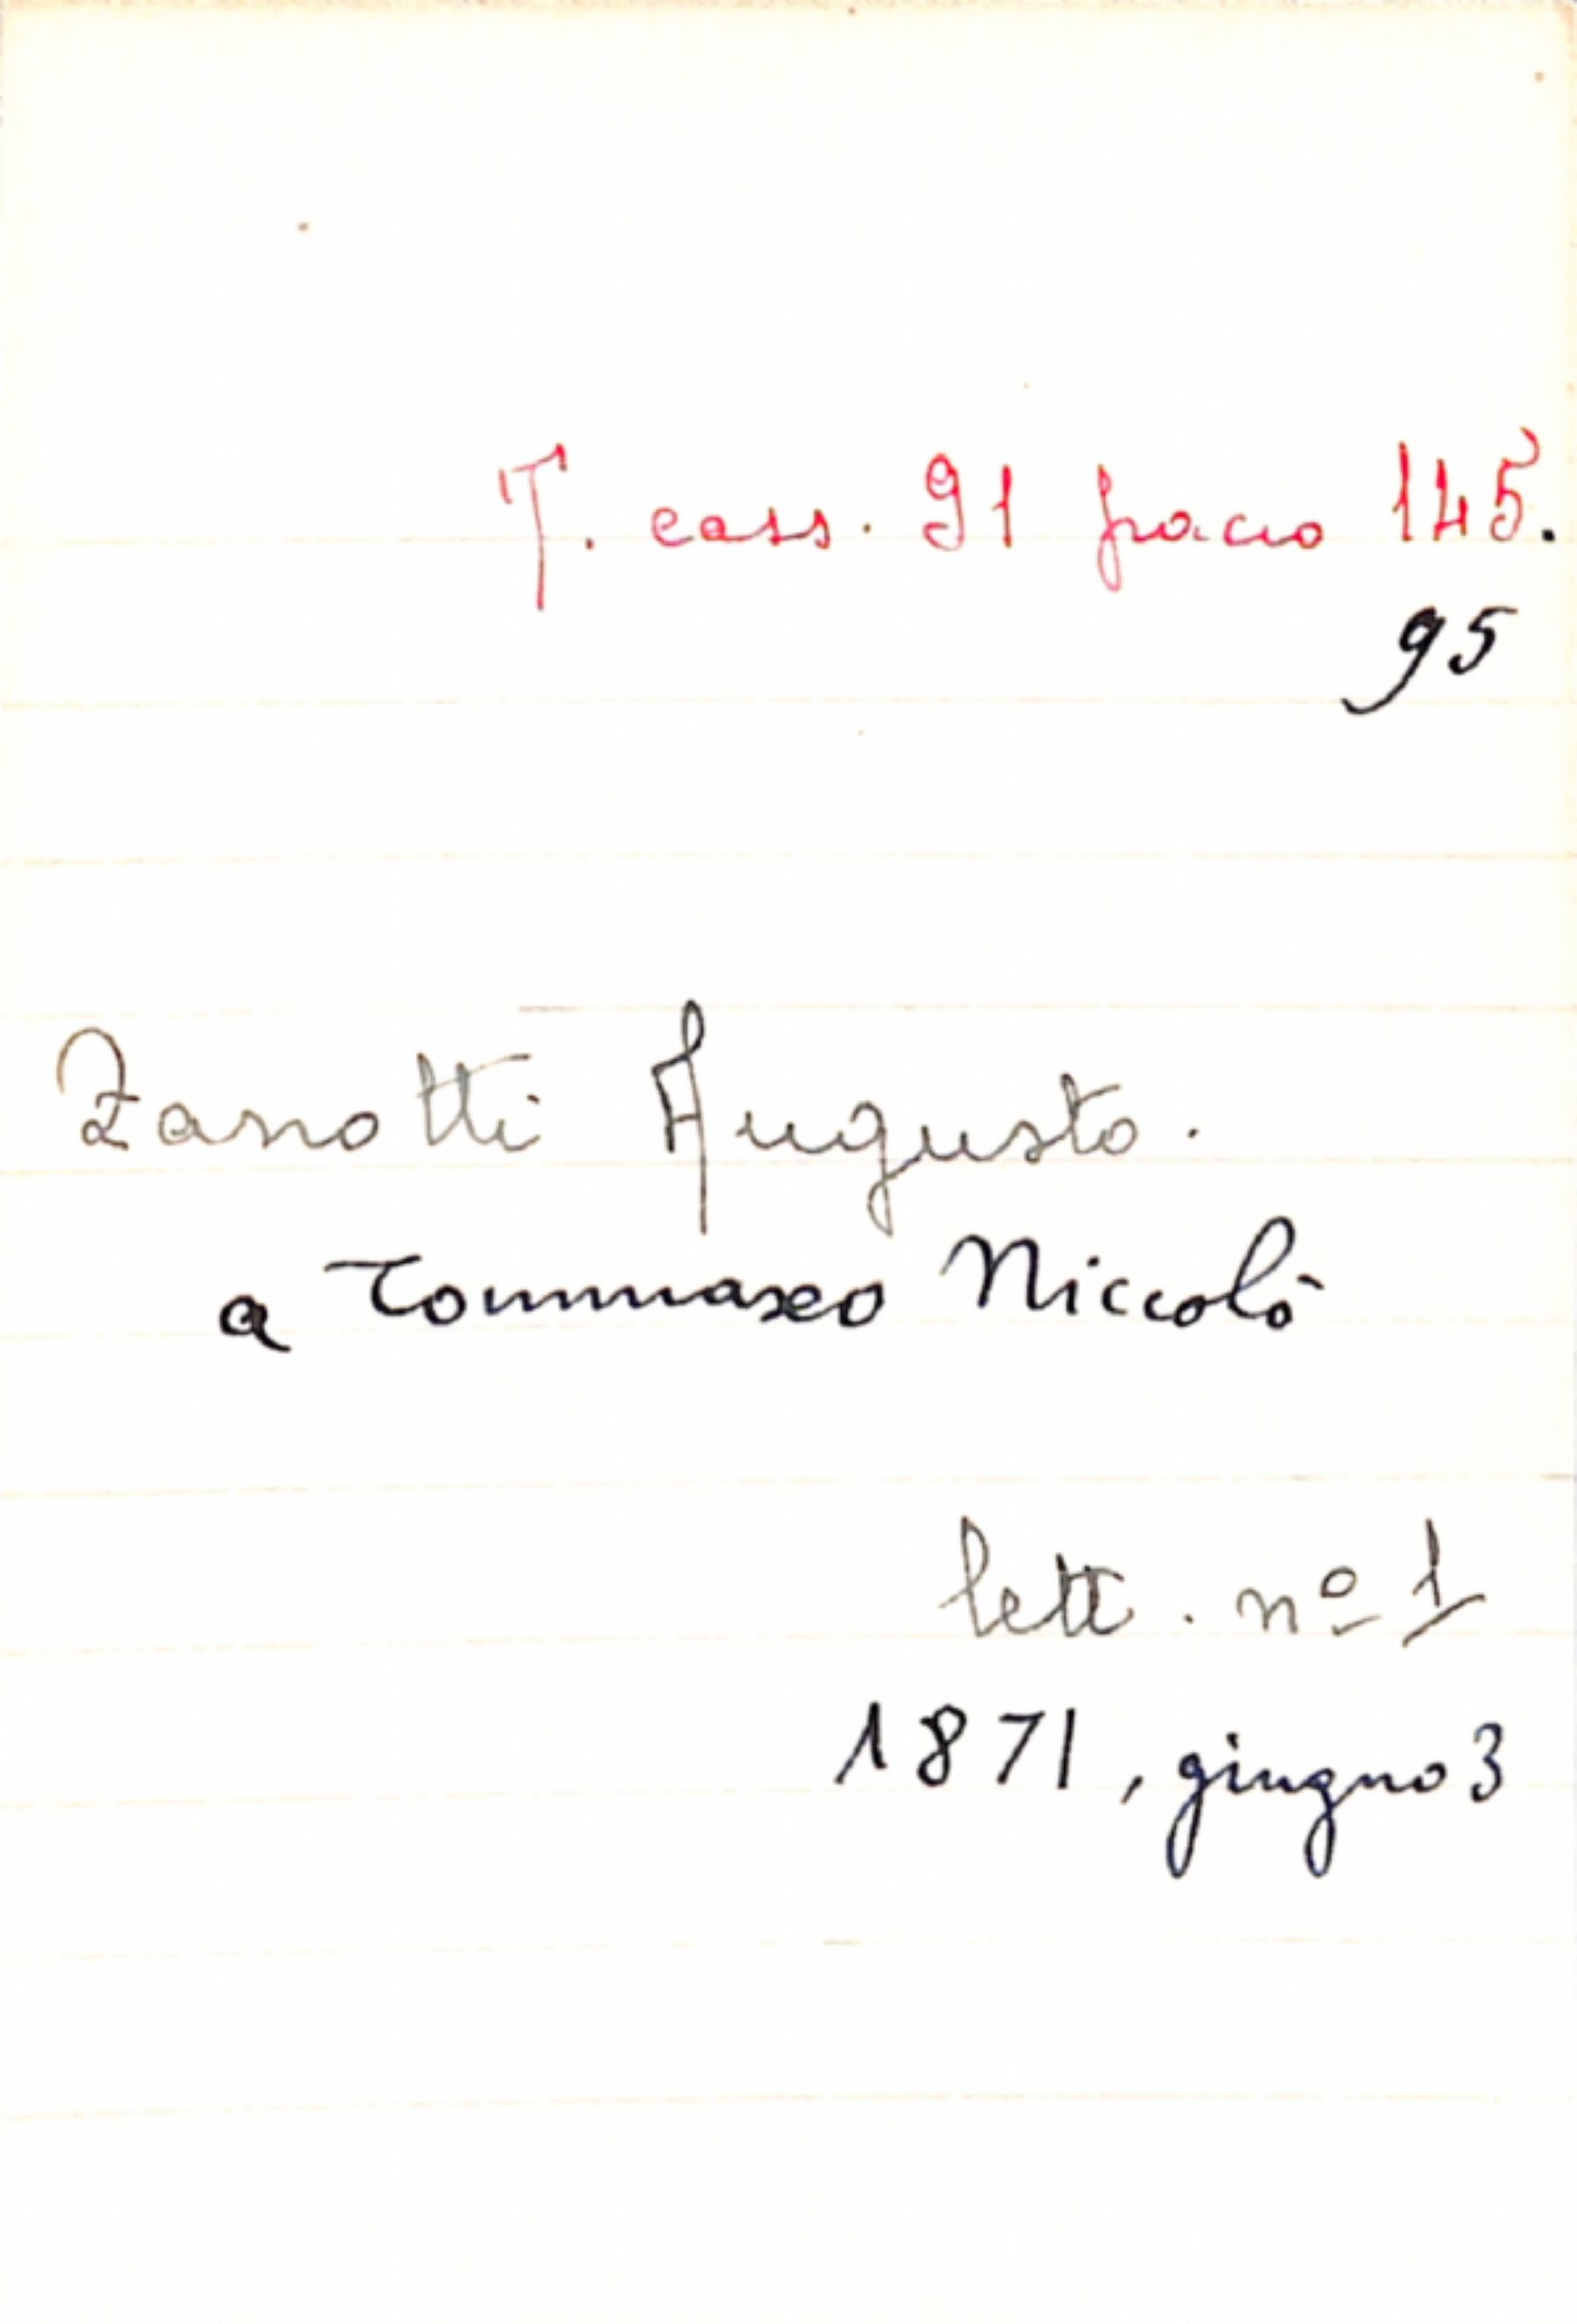 T. cass. 91 fracio 145.
95
Zanotti Augusto.
a Tommaseo Niccolò
lett. nº 1
1871, giugno 3